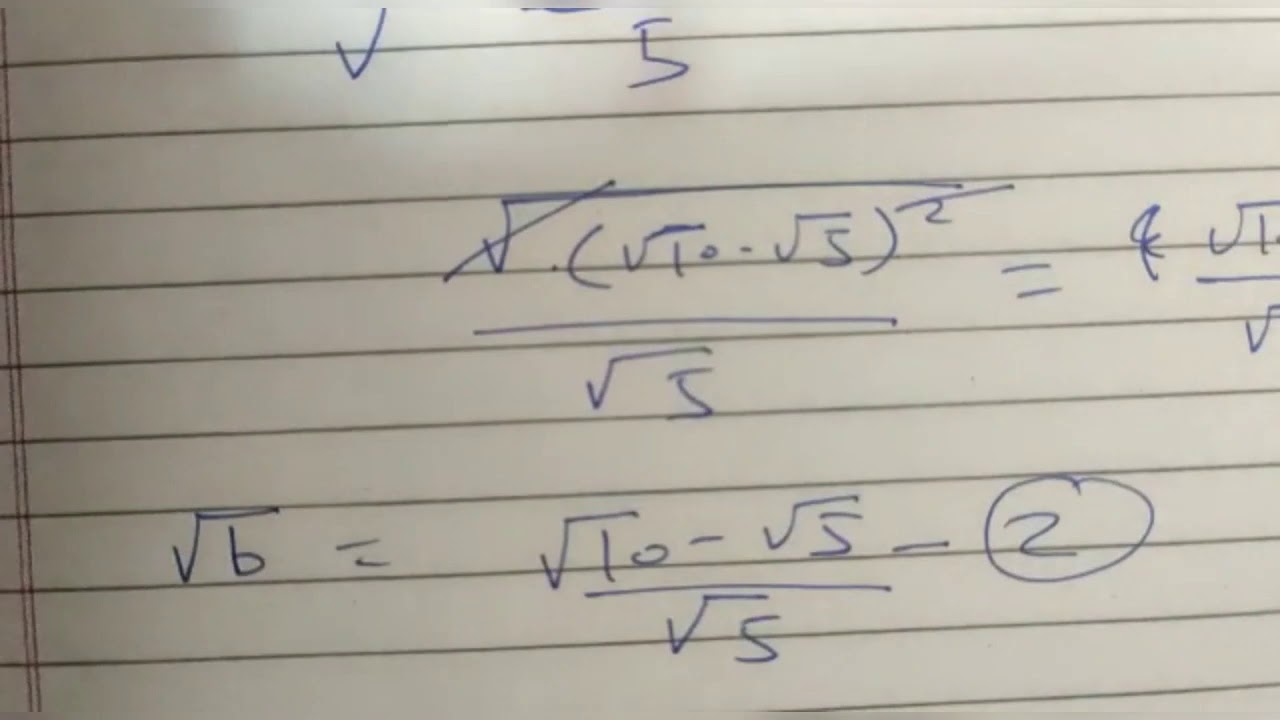 √ 5
√(√10 - √5)² / √5 = √1
√b = √10 - √5 / √5 - 2